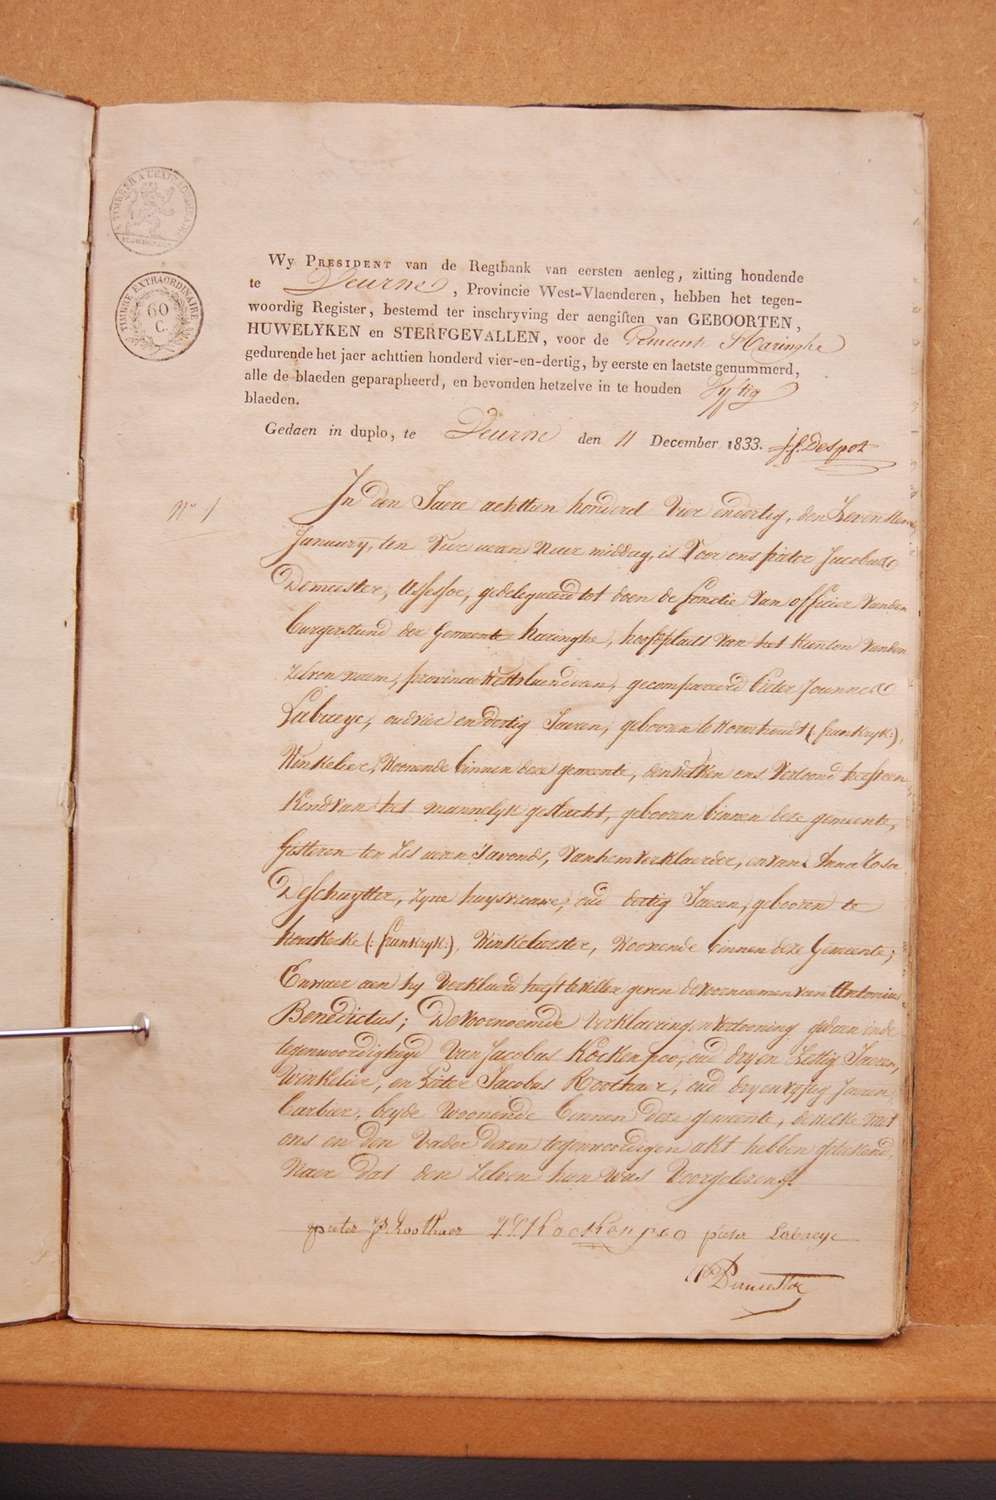 TIMBRE EXTRAORDINAIRE
60
C.
Wy PRESIDENT van de Regtbank van eersten aenleg, zitting hondende
te Veurne, Provincie West-Vlaenderen, hebben het tegen-
woordig Register, bestemd ter inschryving der aengiften van GEBOORTEN,
HUWELYKEN en STERFGEVALLEN, voor de Gemeente Haringhe
gedurende het jaer achttien honderd vier-en-dertig, by eerste en laetste genummerd,
alle de blaeden geparapheerd, en bevonden hetzelve in te houden Vyftig
blaeden.
Gedaen in duplo, te Veurne den 11 December 1833. j.f. Despot
No 1
In den Jaere achttien honderd Vier endertig, den Zevensten
January, ten Vier uren Naer middag, is Voor ons pieter Jacobus
Demeester, Assessor, gedelegueerd tot doen de functie Van officier Vanden
burgerstand der Gemeente haringhe, hoofdplaets Van het Kanton Vanden
Zelven naem, provincie WestVlaenderen, gecompareerd Pieter Joannes
Labaeye, oud vier en dertig Jaeren, gebooren te Wormhoudt (frankryk:),
Winkelier, Woonende binnen deze gemeente, denwelken ons Vertoond heeft een
Kind van het mannelyk geslacht, gebooren binnen deze gemeente,
Gisteren ten Zes uren S'avonds, Van hem Verklaerder, en van Anna Rosa
DeSchuytter, zyne huysvrauwe, oud dertig Jaeren, gebooren te
(: frankryk:), Winkelierster, Woonende binnen deze Gemeente;
Enwaer aen hy Verklaerd heeft te willen geven de voornaemen van Antonius
Benedictus; De Voornoemde Verklaering en vertooning gedaen in de
tegenwoordigheyd Van Jacobus Kockenpoo, oud dry en Zestig Jaeren,
Winkelier, en Pieter Jacobus Roothaer, oud dry en vyftig Jaeren,
barbier, beyde Woonende binnen deze gemeente, dewelke met
ons en den Vader dezen tegenwoordigen akt hebben geteekend,
Naer dat den Zelven hun was Voorgelezen.
pieter J Roothaer J Kockenpoo pieter Labaeye
Demeester